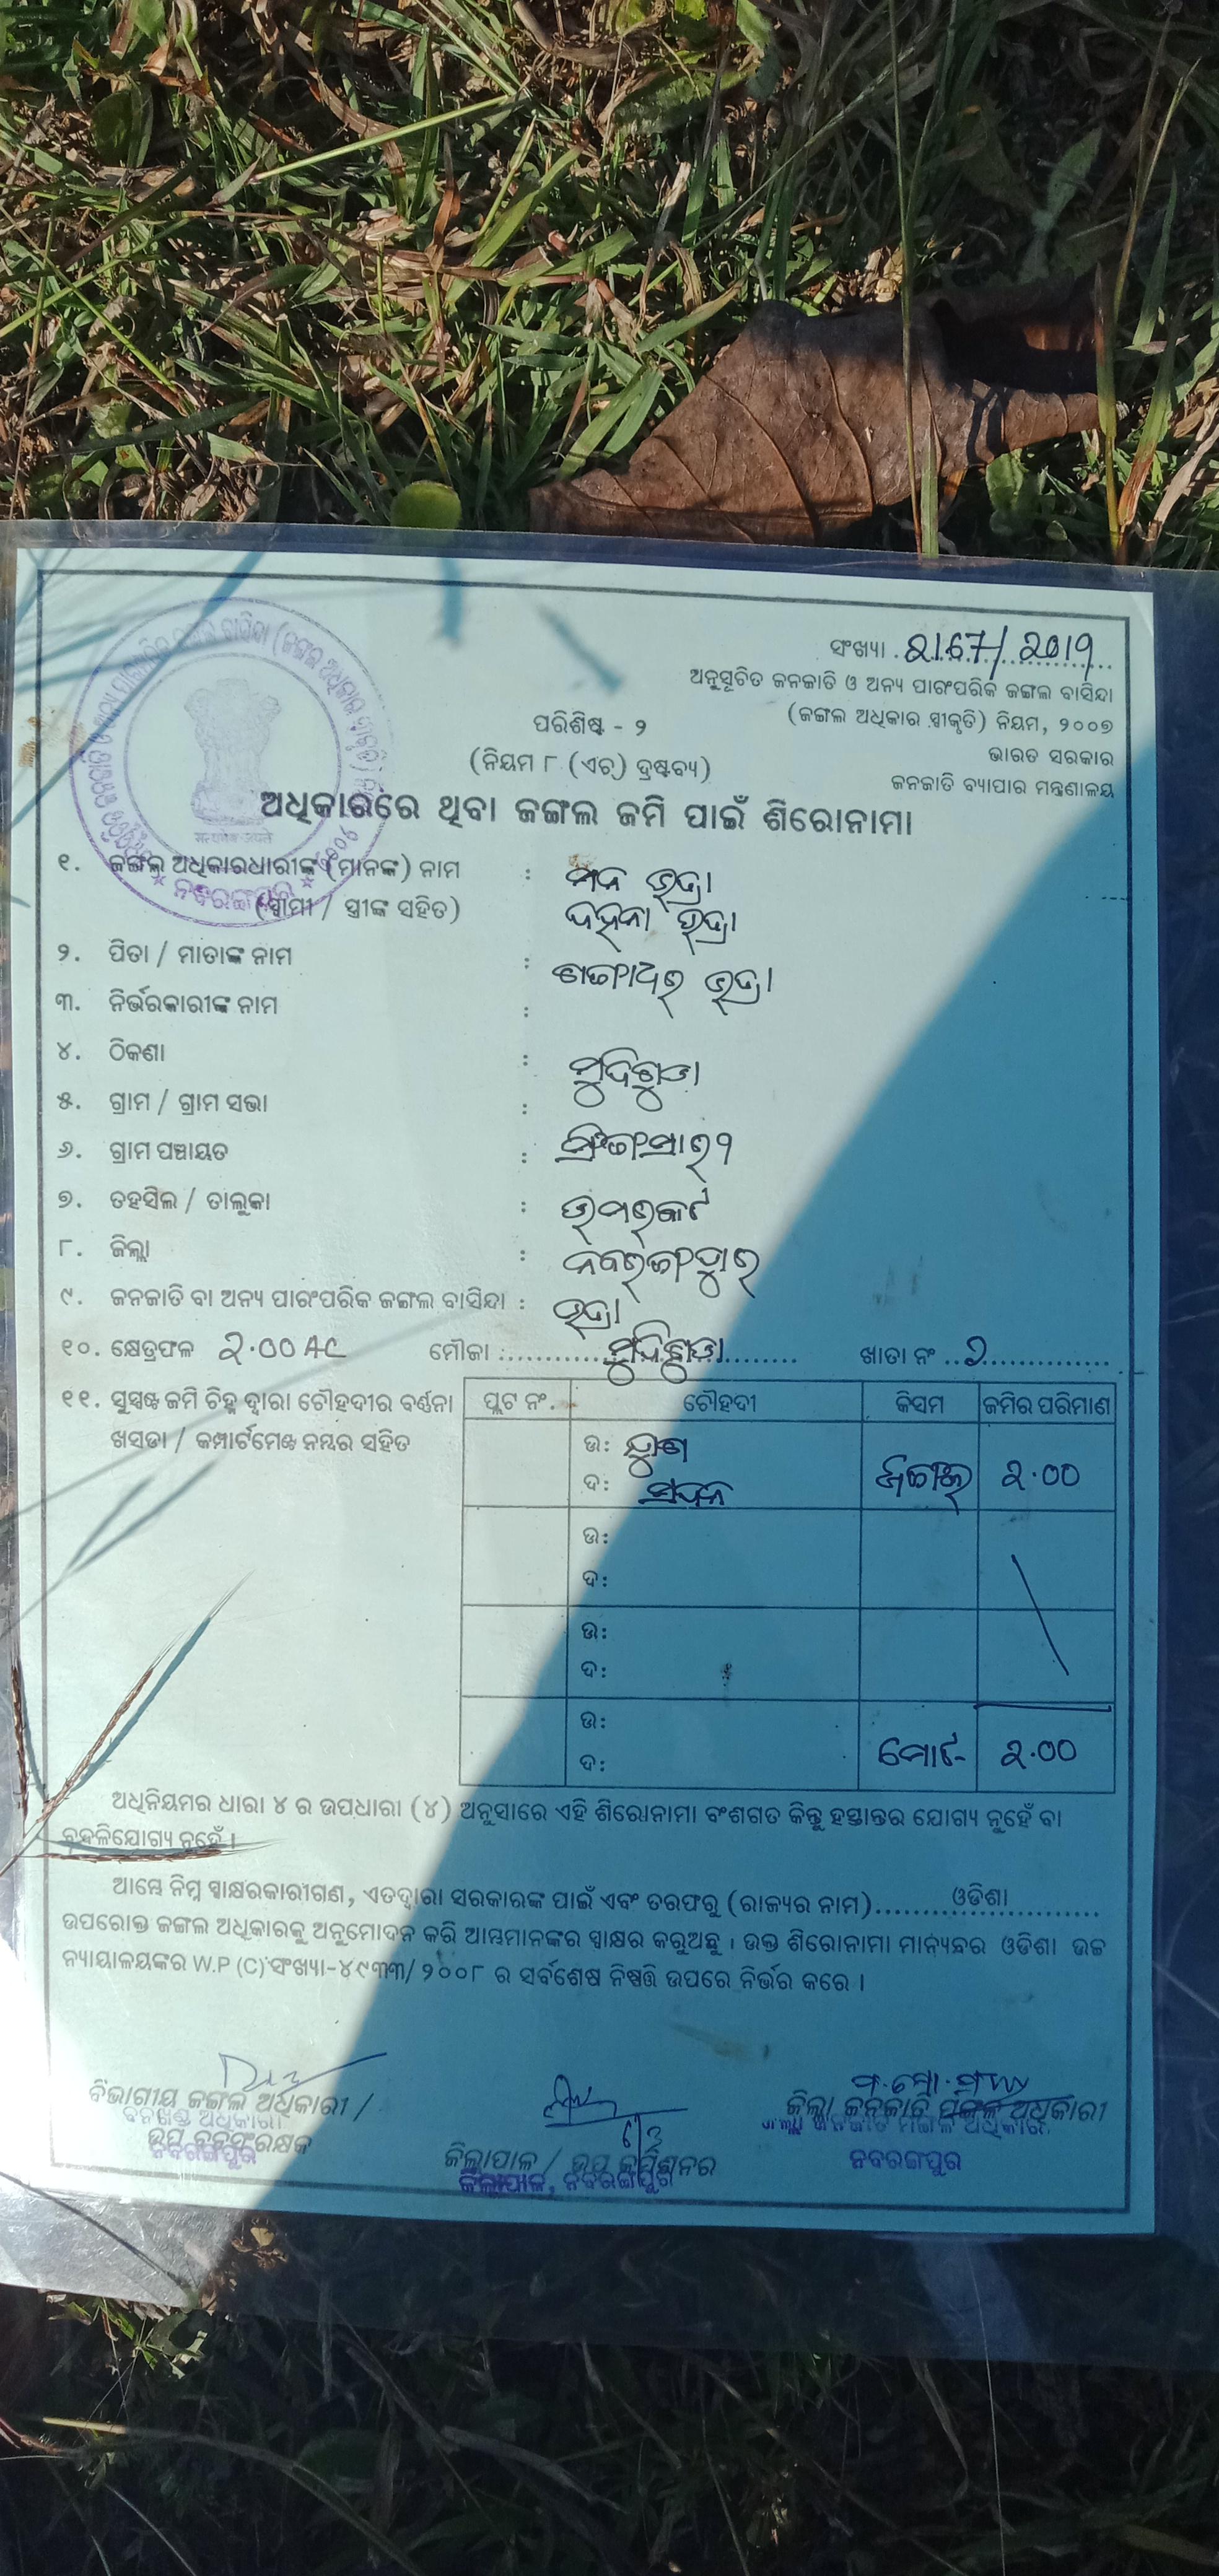 ସଂଖ୍ୟା . 2167/2019
ଅନୁସୂଚିତ ଜନଜାତି ଓ ଅନ୍ୟ ପାରଂପରିକ ଜଙ୍ଗଲ ବାସିନ୍ଦା
(ଜଙ୍ଗଲ ଅଧିକାର ସ୍ୱୀକୃତି) ନିୟମ, ୨୦୦୭
ଭାରତ ସରକାର
ଜନଜାତି ବ୍ୟାପାର ମନ୍ତ୍ରଣାଳୟ
ପରିଶିଷ୍ଟ - ୨
(ନିୟମ ୮ (ଏଚ୍) ଦ୍ରଷ୍ଟବ୍ୟ)
ଅଧିକାରରେ ଥିବା ଜଙ୍ଗଲ ଜମି ପାଇଁ ଶିରୋନାମା
୧. ଜଙ୍ଗଲ ଅଧିକାରଧାରୀଙ୍କ (ମାନଙ୍କ) ନାମ : ମନ ଭତ୍ରା
(ସ୍ୱାମୀ / ସ୍ତ୍ରୀଙ୍କ ସହିତ) ଭତ୍ରା
୨. ପିତା / ମାତାଙ୍କ ନାମ : ଭତ୍ରା
୩. ନିର୍ଭରକାରୀଙ୍କ ନାମ :
୪. ଠିକଣା : ମୁଦିଗୁଡା
୫. ଗ୍ରାମ / ଗ୍ରାମ ସଭା :
୬. ଗ୍ରାମ ପଞ୍ଚାୟତ :
୭. ତହସିଲ / ତାଲୁକା : ଉମରକୋଟ
୮. ଜିଲ୍ଲା : ନବରଙ୍ଗପୁର
୯. ଜନଜାତି ବା ଅନ୍ୟ ପାରଂପରିକ ଜଙ୍ଗଲ ବାସିନ୍ଦା : ଭତ୍ରା
୧୦. କ୍ଷେତ୍ରଫଳ 2.00 AC ମୌଜା : ମୁଦିଗୁଡା ଖାତା ନଂ
୧୧. ସୁସ୍ପଷ୍ଟ ଜମି ଚିହ୍ନ ଦ୍ୱାରା ଚୌହଦୀର ବର୍ଣ୍ଣନା ପ୍ଲଟ ନଂ. ଚୌହଦୀ କିସମ ଜମିର ପରିମାଣ
ଖସଡା / କମ୍ପାର୍ଟମେଣ୍ଟ ନମ୍ବର ସହିତ ଉ:
ଦ: ଜଙ୍ଗଲ 2.00
ଉ:
ଦ:
ଉ:
ଦ:
ଉ:
ଦ: ମୋଟ- 2.00
ଅଧିନିୟମର ଧାରା ୪ ର ଉପଧାରା (୪) ଅନୁସାରେ ଏହି ଶିରୋନାମା ବଂଶଗତ କିନ୍ତୁ ହସ୍ତାନ୍ତର ଯୋଗ୍ୟ ନୁହେଁ ବା
ବଦଳିଯୋଗ୍ୟ ନୁହେଁ ।
ଆମ୍ଭେ ନିମ୍ନ ସ୍ୱାକ୍ଷରକାରୀଗଣ, ଏତଦ୍ୱାରା ସରକାରଙ୍କ ପାଇଁ ଏବଂ ତରଫରୁ (ରାଜ୍ୟର ନାମ) ଓଡିଶା
ଉପରୋକ୍ତ ଜଙ୍ଗଲ ଅଧିକାରକୁ ଅନୁମୋଦନ କରି ଆମ୍ଭମାନଙ୍କର ସ୍ୱାକ୍ଷର କରୁଅଛୁ । ଉକ୍ତ ଶିରୋନାମା ମାନ୍ୟବର ଓଡିଶା ଉଚ୍ଚ
ନ୍ୟାୟାଳୟଙ୍କର W.P (C) ସଂଖ୍ୟା-୪୯୩୩/ ୨୦୦୮ ର ସର୍ବଶେଷ ନିଷ୍ପତ୍ତି ଉପରେ ନିର୍ଭର କରେ ।
ବିଭାଗୀୟ ଜଙ୍ଗଲ ଅଧିକାରୀ / ଜିଲ୍ଲା ଜନଜାତି ମଙ୍ଗଳ ଅଧିକାରୀ
ବନଖଣ୍ଡ ଅଧିକାରୀ ଜିଲ୍ଲା ଜନଜାତି ମଙ୍ଗଳ ଅଧିକାରୀ
ଉପ ବନସଂରକ୍ଷକ ନବରଙ୍ଗପୁର
ନବରଙ୍ଗପୁର ଜିଲ୍ଲାପାଳ / ଉପ କମିଶନର
ଜିଲ୍ଲାପାଳ, ନବରଙ୍ଗପୁର